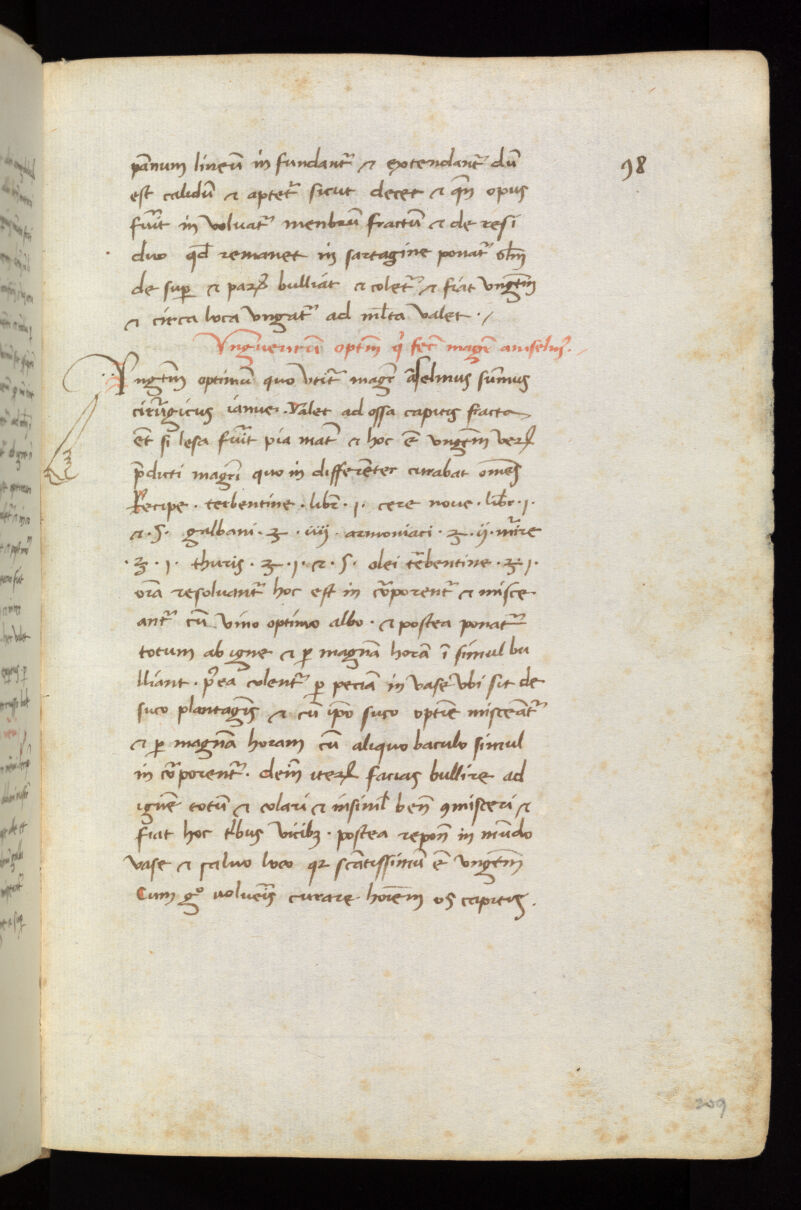 98
pānum lineū in fundant᷑ ⁊ extendant᷑ dū
est calidū ⁊ aptet᷑ sicut decet ⁊ qn̄ opus
fuīt in voluat᷑ menbrū fractū ⁊ de resi
duo qd̄ remanet in sartagine ponat᷑
de sup̄ ⁊ bulliat ⁊ colet᷑ ⁊ fiat vngtm̄
⁊ circa loca vngat᷑ ad ml̄ta valet ·/
Vnguentum optm̄ fec̄ magr̄ anselmꝰ ·/
Vngtm̄ optimū quo vtit᷑ magr̄ āselmus sūmus
cirurgicus ianue · valet ad ossa capitis fracta
et si lesa fuīt pia mat᷑ ⁊ hoc ē vngtm̄ veꝝ
p̄dicti magr̄i quo in differenter curabat om̄es
Recipe · terbentine · libr̄ · j · cere noue · libr̄ · j ·
⁊ · s · galbani · ʒ · iiij · armoniaci · ʒ · ij · mirre
· ʒ · j · thuris · ʒ · j · ⁊ · s · olei t̄bentine · ʒ · j ·
om̄ia resoluant᷑ hoc est in corporent᷑ ⁊ misce
ant᷑ cū vino optimo albo · ⁊ postea ponat᷑
totum ab igne ⁊ p̱ magnā horā ī simul bu
lliant · p̄ea colent᷑ p̱ peciā in vase vbi sit de
suco plantagīs ⁊ cū ip̄o suco optie misceāt᷑
⁊ p̱ magnā horam cū aliquo baculo simul
in corporent᷑ · deīn iteꝝ facias bullire ad
ignē totū ⁊ colari ⁊ insimil̄ ben̄ ꝯmisceri ⁊
fiat hoc tbus vicibꝫ · postea repon̄ in mūdo
vase ⁊ saluo loco qr scātissimū ē vngtm̄
Cum gͦ volueīs curare hoīem os capitis ·
209